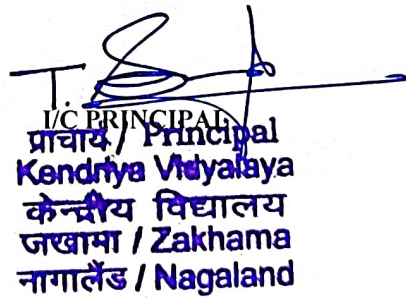 I/C PRINCIPAL
प्राचार्य / Principal
Kendriya Vidyalaya
केन्द्रीय विद्यालय
जखामा / Zakhama
नागालैंड / Nagaland